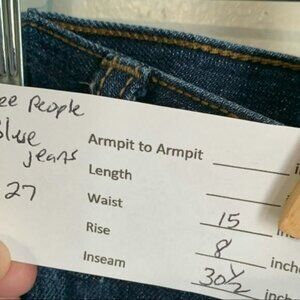 ee People
Blue
jeans
27
Armpit to Armpit
Length
Waist 15
Rise 8 inche
Inseam 30 1/2 inch